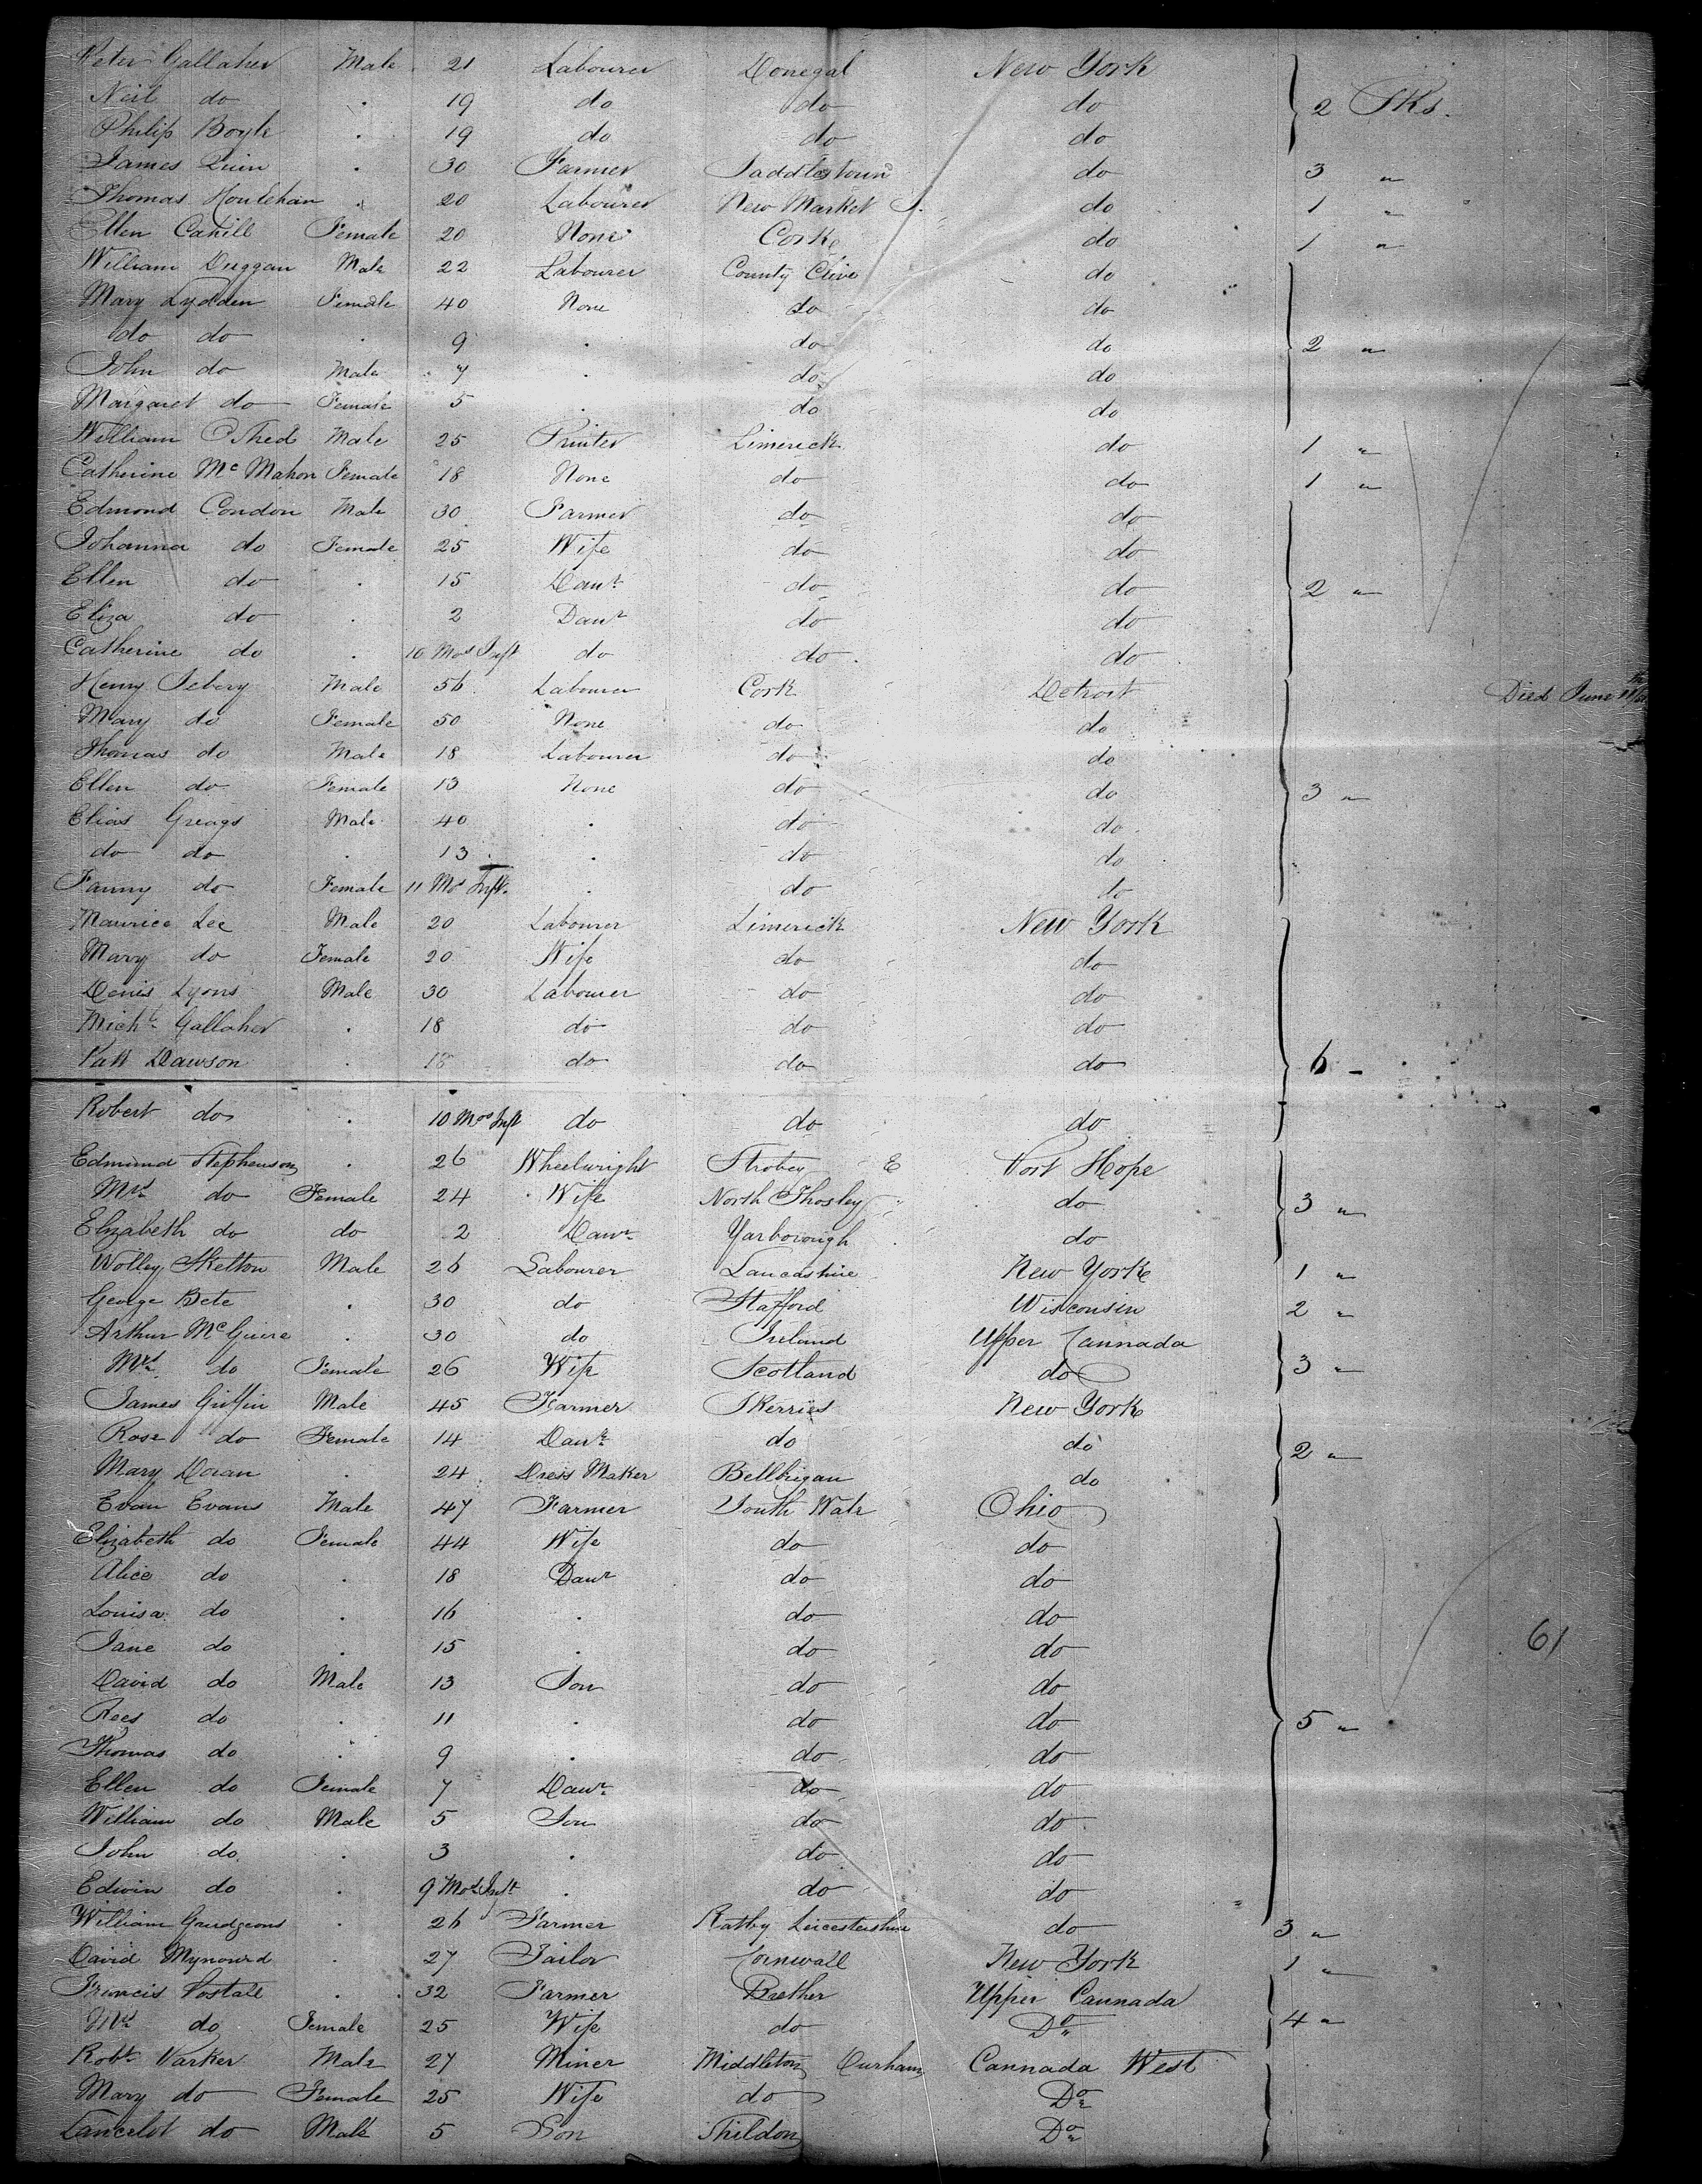 Peter Gallaher Male 21 Labourer Donegal New York
Neil do . 19 do do do 2 Pks.
Philip Boyle . 19 do do do
James Quin . 30 Farmer Saddlestown do 3 "
Thomas Houlehan " 20 Labourer New Market do 1 "
Ellen Cahill Female 20 None Cork do 1 "
William Duggan Male 22 Labourer County Clive do
Mary Lydden Female 40 None do do
do do . 9 . do do 2 "
John do Male 7 . do do
Margaret do Female 5 . do do
William OShed Male 25 Printer Limerick do 1 "
Catherine McMahon Female 18 None do do 1 "
Edmond Condon Male 30 Farmer do do
Johanna do Female 25 Wife do do
Ellen do . 15 Daur do do 2 "
Eliza do . 2 Daur do do
Catherine do . 10 Mos Inft do do do
Henry Male 56 Labourer Cork Detroit Died June
Mary do Female 50 None do do
Thomas do Male 18 Labourer do do
Ellen do Female 13 None do do 3 "
Elias Greags Male 40 . do do
do do . 13 . do do
Fanny do Female 11 Mos Inft. . do do
Maurice Lee Male 20 Labourer Limerick New York
Mary do Female 20 Wife do do
Denis Lyons Male 30 Labourer do do
Michl Gallaher . 18 do do do
Patt Dawson . 18 do do do 6 -
Robert do . 10 Mos Inft do do do
Edmund Stephenson . 26 Wheelwright Strobey E Port Hope
Mrs do Female 24 Wife North Thosley do 3 "
Elizabeth do do 2 Daur Yarborough do
Wolley Skelton Male 26 Labourer Lancashire New York 1 "
George Bete . 30 do Stafford Wisconsin 2 "
Arthur McGuire . 30 do Ireland Upper Cannada
Mrs do Female 26 Wife Scotland do 3 "
James Griffin Male 45 Farmer Skerries New York
Rose do Female 14 Daur do do 2 "
Mary Doran . 24 Dress Maker Bellbrigan do
Evan Evans Male 47 Farmer South Wale Ohio
Elizabeth do Female 44 Wife do do
Alice do . 18 Daur do do
Louisa do . 16 . do do
Jane do . 15 . do do 61
David do Male 13 Son do do
Rees do . 11 . do do 5 "
Thomas do " 9 . do do
Ellen do Female 7 Daur do do
William do Male 5 Son do do
John do . 3 . do do
Edwin do . 9 Mos Inft . do do
William Gaudgeons . 26 Farmer Ratby Leicestershire do 3 "
David Mynourd . 27 Tailor Cornwall New York 1 "
Francis Postale . 32 Farmer Brether Upper Cannada
Mrs do Female 25 Wife do Do 4 "
Robt Varker Male 27 Miner Middleton Durham Cannada West
Mary do Female 25 Wife do Do
Lancelot do Male 5 Son Shildon Do